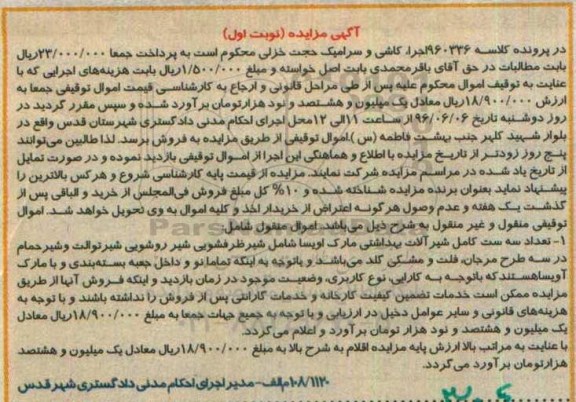 آگهی مزایده (نوبت اول)
در پرونده کلاسه ۹۶۰۳۳۶اجرا، کاشی و سرامیک حجت خزلی محکوم است به پرداخت جمعا ۲۳/۰۰۰/۰۰۰ریال
بابت مطالبات در حق آقای باقرمحمدی بابت اصل خواسته و مبلغ ۱/۵۰۰/۰۰۰ریال بابت هزینه‌های اجرایی که با
عنایت به توقیف اموال محکوم علیه پس از طی مراحل قانونی و ارجاع به کارشناسی قیمت اموال توقیفی جمعا به
ارزش ۱۸/۹۰۰/۰۰۰ریال معادل یک میلیون و هشتصد و نود هزارتومان برآورد شده و سپس مقرر گردید در
روز دوشنبه تاریخ ۹۶/۰۶/۰۶از ساعت ۱۱الی ۱۲محل اجرای احکام مدنی دادگستری شهرستان قدس واقع در
بلوار شهید کلهر جنب بهشت فاطمه (س )،اموال توقیفی از طریق مزایده به فروش برسد. لذا طالبین می‌توانند
پنج روز زودتر از تاریخ مزایده با اطلاع و هماهنگی این اجرا از اموال توقیفی بازدید نموده و در صورت تمایل
از تاریخ یاد شده در مراسم مزایده شرکت نمایند. مزایده از قیمت پایه کارشناسی شروع و هرکس بالاترین را
پیشنهاد نماید بعنوان برنده مزایده شناخته شده و ۱۰% کل مبلغ فروش فی‌المجلس از خرید و الباقی پس از
گذشت یک هفته و عدم وصول هرگونه اعتراض از خریدار اخذ و کلیه اموال به وی تحویل خواهد شد. اموال
توقیفی منقول و غیر منقول به شرح ذیل می‌باشد. اموال منقول شامل:
۱- تعداد سه ست کامل شیرآلات بهداشتی مارک اویسا شامل شیرظرفشویی شیر روشویی شیرتوالت وشیرحمام
در سه طرح مرجان، فلت و مشکی گلد می‌باشد و باتوجه به اینکه تماما نو و داخل جعبه بسته‌بندی و با مارک
آویساهستند که باتوجه به کارایی، نوع کاربری، وضعیت موجود در زمان بازدید و اینکه فروش آنها از طریق
مزایده ممکن است خدمات تضمین کیفیت کارخانه و خدمات گارانتی پس از فروش را نداشته باشند و با توجه به
هزینه‌های قانونی و سایر عوامل دخیل در ارزیابی و با توجه به جمیع جهات جمعا به مبلغ ۱۸/۹۰۰/۰۰۰ریال معادل
یک میلیون و هشتصد و نود هزار تومان برآورد و اعلام می‌گردد.
با عنایت به مراتب بالا ارزش پایه مزایده اقلام به شرح بالا به مبلغ ۱۸/۹۰۰/۰۰۰ریال معادل یک میلیون و هشتصد
هزارتومان برآورد می‌گردد.
۱۰۸/۱۱۲۰م‌الف- مدیر اجرای احکام مدنی دادگستری شهر قدس
۳۰۰۴